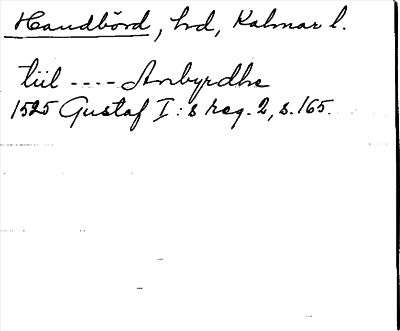 Handbörd, hd, Kalmar l.
till ---- Anbyrdhe
1525 Gustaf I:s reg. 2, s. 165.